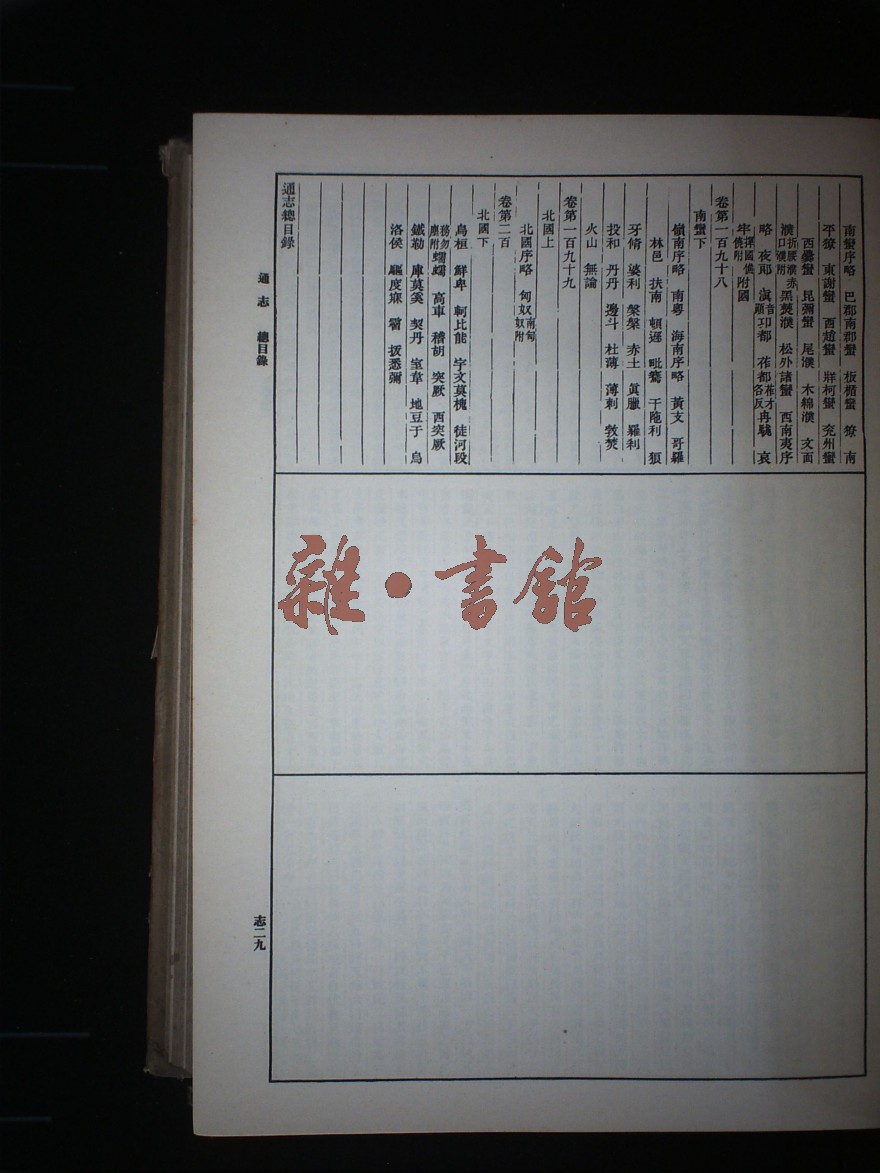 南蠻序略 巴郡南郡蠻 板楯蠻 獠 南
平獠 東謝蠻 西趙蠻 牂柯蠻 兖州蠻
西爨蠻 昆彌蠻 尾濮 木綿濮 文面
濮 折腰濮 赤口濮附 黑僰濮 松外諸蠻 西南夷序
略 夜郎 滇 音顚 邛都 莋都 莋才各反 冉駹 哀
牢 撣國 僬僥附 附國
卷第一百九十八
南蠻下
嶺南序略 南粵 海南序略 黃支 哥羅
林邑 扶南 頓遜 毗騫 干陁利 狼
牙脩 婆利 槃槃 赤土 眞臘 羅刹
投和 丹丹 邊斗 杜薄 薄刺 敦焚
火山 無論
卷第一百九十九
北國上
北國序略 匈奴 南匈奴附
卷第二百
北國下
烏桓 鮮卑 軻比能 宇文莫槐 徒河段
務勿塵附 蠕蠕 高車 稽胡 突厥 西突厥
鐵勒 庫莫奚 契丹 室韋 地豆于 烏
洛侯 驅度寐 霫 拔悉彌
通志總目錄
通志 總目錄
志二九
雜·書館